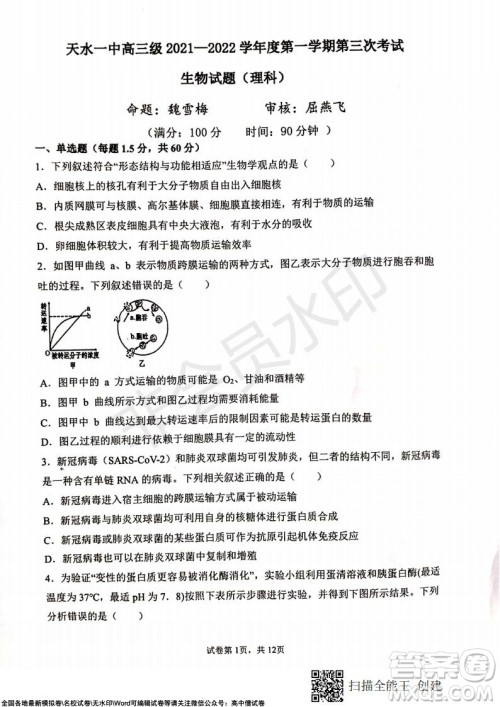 天水一中高三级 2021—2022 学年度第一学期第三次考试
生物试题（理科）
命题：魏雪梅 审核：屈燕飞
（满分：100 分 时间：90 分钟 ）
一、单选题（每题 1.5 分，共 60 分）
1．下列叙述符合“形态结构与功能相适应”生物学观点的是（ ）
A．细胞核上的核孔有利于大分子物质自由出入细胞核
B．内质网膜可与核膜、高尔基体膜、细胞膜直接相连，有利于物质的运输
C．根尖成熟区表皮细胞有大液泡，有利于根吸收水分
D．卵细胞体积较大，有利于提高物质运输效率
2．如图甲曲线 a、b 表示物质跨膜运输的两种方式，图乙表示大分子物质进行胞吞和胞
吐的过程。下列叙述错误的是（ ）
转运速率
a
b
被转运分子的浓度
甲
a.胞吞
b.胞吐
乙
A．图甲中的 a 方式运输的物质可能是 O₂、甘油和酒精等
B．图甲中 b 代表的方式运输物质时可能需要消耗能量
C．图甲中 b 曲线达到最大转运速率后的限制因素可能是转运蛋白的数量
D．图乙过程的顺利进行依赖于细胞膜上转运蛋白的协助
3．新冠病毒（SARS-CoV-2）和肺炎双球菌均可引发肺炎，但二者的结构不同，新冠病毒是
一种含有单链 RNA 的病毒。下列叙述正确的是（ ）
A．新冠病毒进入宿主细胞的跨膜运输方式是胞吞，需要载体和能量
B．新冠病毒与肺炎双球菌均可利用自身的核糖体进行蛋白质合成
C．新冠病毒与肺炎双球菌二者遗传物质所含有的核苷酸是相同的
D．新冠病毒或肺炎双球菌的某些蛋白质可作为抗原引起人体免疫反应
4．为验证“变性的蛋白质更容易被消化酶消化”，实验小组利用蛋清溶液和胰蛋白酶(最适
温度为 37℃,最适 pH 为 7．8)按照如下步骤进行实验，结果发现处理后的实验现象不明显。下列
分析错误的是（ ）
试卷第 1页，共 12页
扫描全能王 创建
全国各地最新模拟卷\名校试卷\无水印\Word可编辑试卷等请关注微信公众号：高中僧试卷